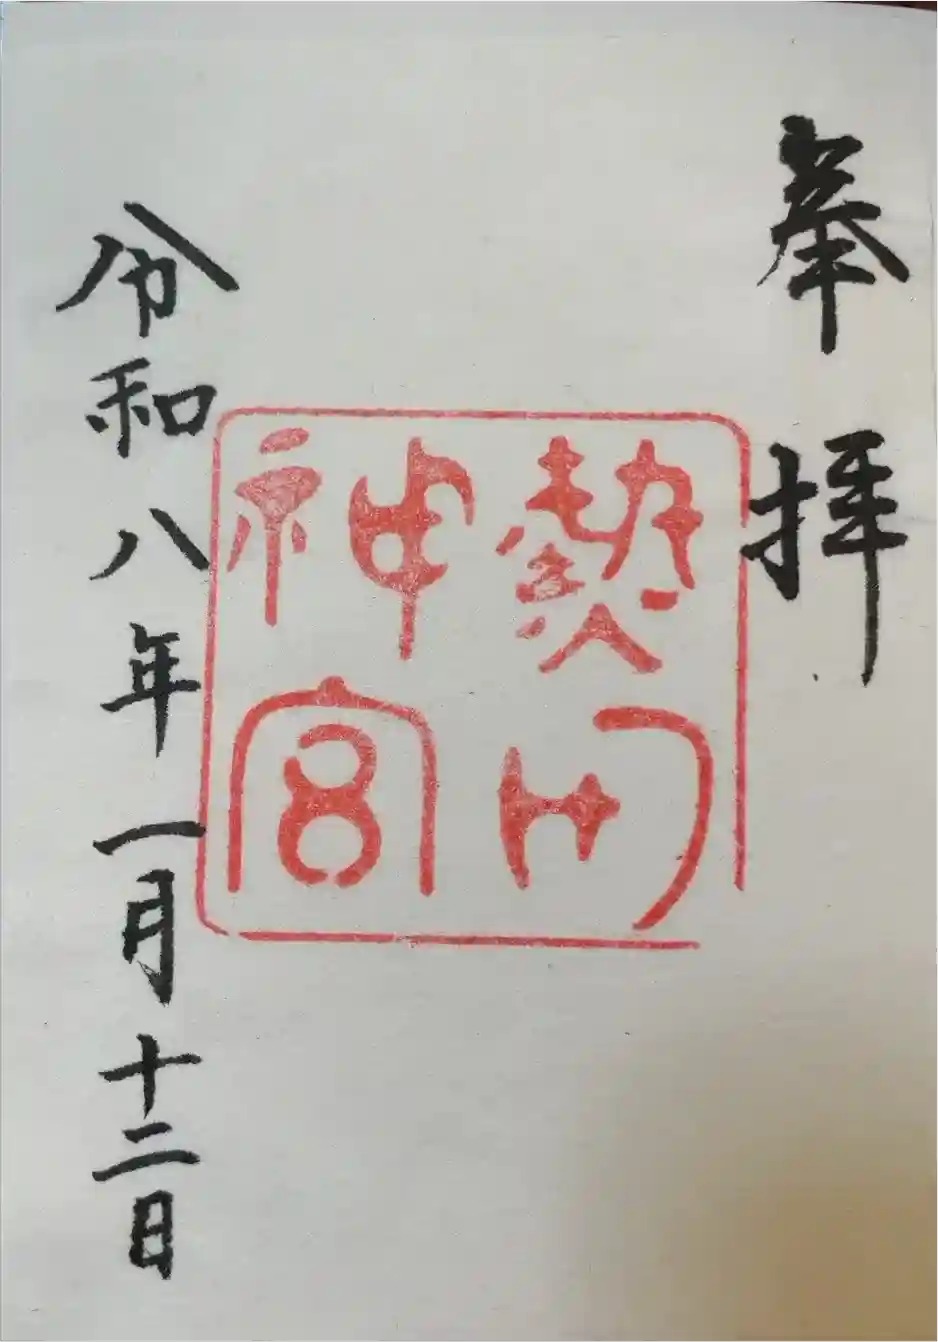 奉拝
熱田
神宮
令和八年一月十二日